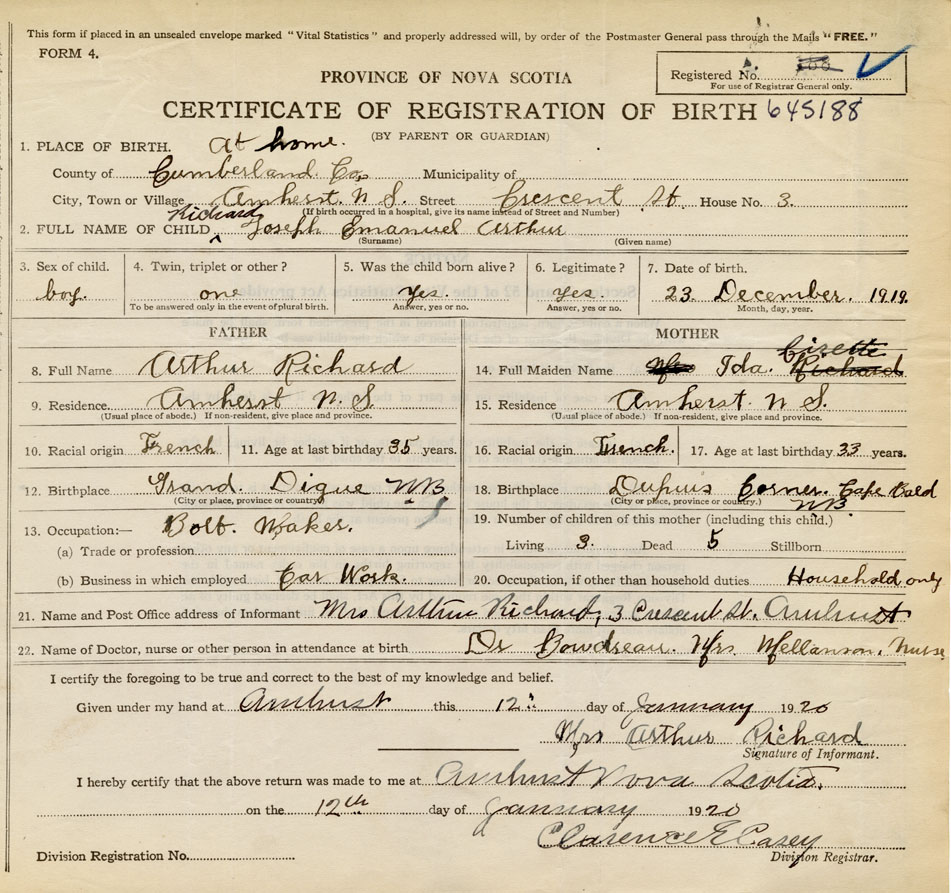 This form if placed in an unscaled envelope marked "Vital Statistics" and properly addressed will, by order of the Postmaster General pass through the Mails "FREE."
FORM 4.
Registered No. A.
For use of Registrar General only.
PROVINCE OF NOVA SCOTIA
CERTIFICATE OF REGISTRATION OF BIRTH 645188
(BY PARENT OR GUARDIAN)
1. PLACE OF BIRTH. At home.
County of Cumberland Co, Municipality of
City, Town or Village Amherst. N S. Street Crescent St. House No. 3.
(If birth occurred in a hospital, give its name instead of Street and Number)
Richard
2. FULL NAME OF CHILD Joseph Emanuel Arthur
(Surname) (Given name)
3. Sex of child. 4. Twin, triplet or other? 5. Was the child born alive? 6. Legitimate? 7. Date of birth.
boy. one Yes. Yes. 23. December. 1919.
To be answered only in the event of plural birth. Answer, yes or no. Answer, yes or no. Month, day, year.
FATHER
8. Full Name Arthur Richard
9. Residence Amherst N. S.
(Usual place of abode.) If non-resident, give place and province.
10. Racial origin French 11. Age at last birthday 35 years.
12. Birthplace Grand. Digue NB
(City or place, province or country)
13. Occupation:— Bolt. Maker.
(a) Trade or profession
(b) Business in which employed Car Work.
MOTHER
14. Full Maiden Name Mrs Ida. Richard
15. Residence Amherst. N. S.
(Usual place of abode.) If non-resident, give place and province.
16. Racial origin French. 17. Age at last birthday 33 years.
18. Birthplace Dupuis Corner. Cape Bald
(City or place, province or country.) NB
19. Number of children of this mother (including this child.)
Living 3. Dead 5 Stillborn
20. Occupation, if other than household duties Household only
21. Name and Post Office address of Informant Mrs Arthur Richard, 3 Crescent St. Amherst
22. Name of Doctor, nurse or other person in attendance at birth Dr Bowdreau. Mrs. Mellanson. Nurse
I certify the foregoing to be true and correct to the best of my knowledge and belief.
Given under my hand at Amherst this 12th day of January 1920
Mrs Arthur Richard
Signature of Informant.
I hereby certify that the above return was made to me at Amherst Nova Scotia,
on the 12th day of January 1920
Clarence E Casey
Division Registrar.
Division Registration No.